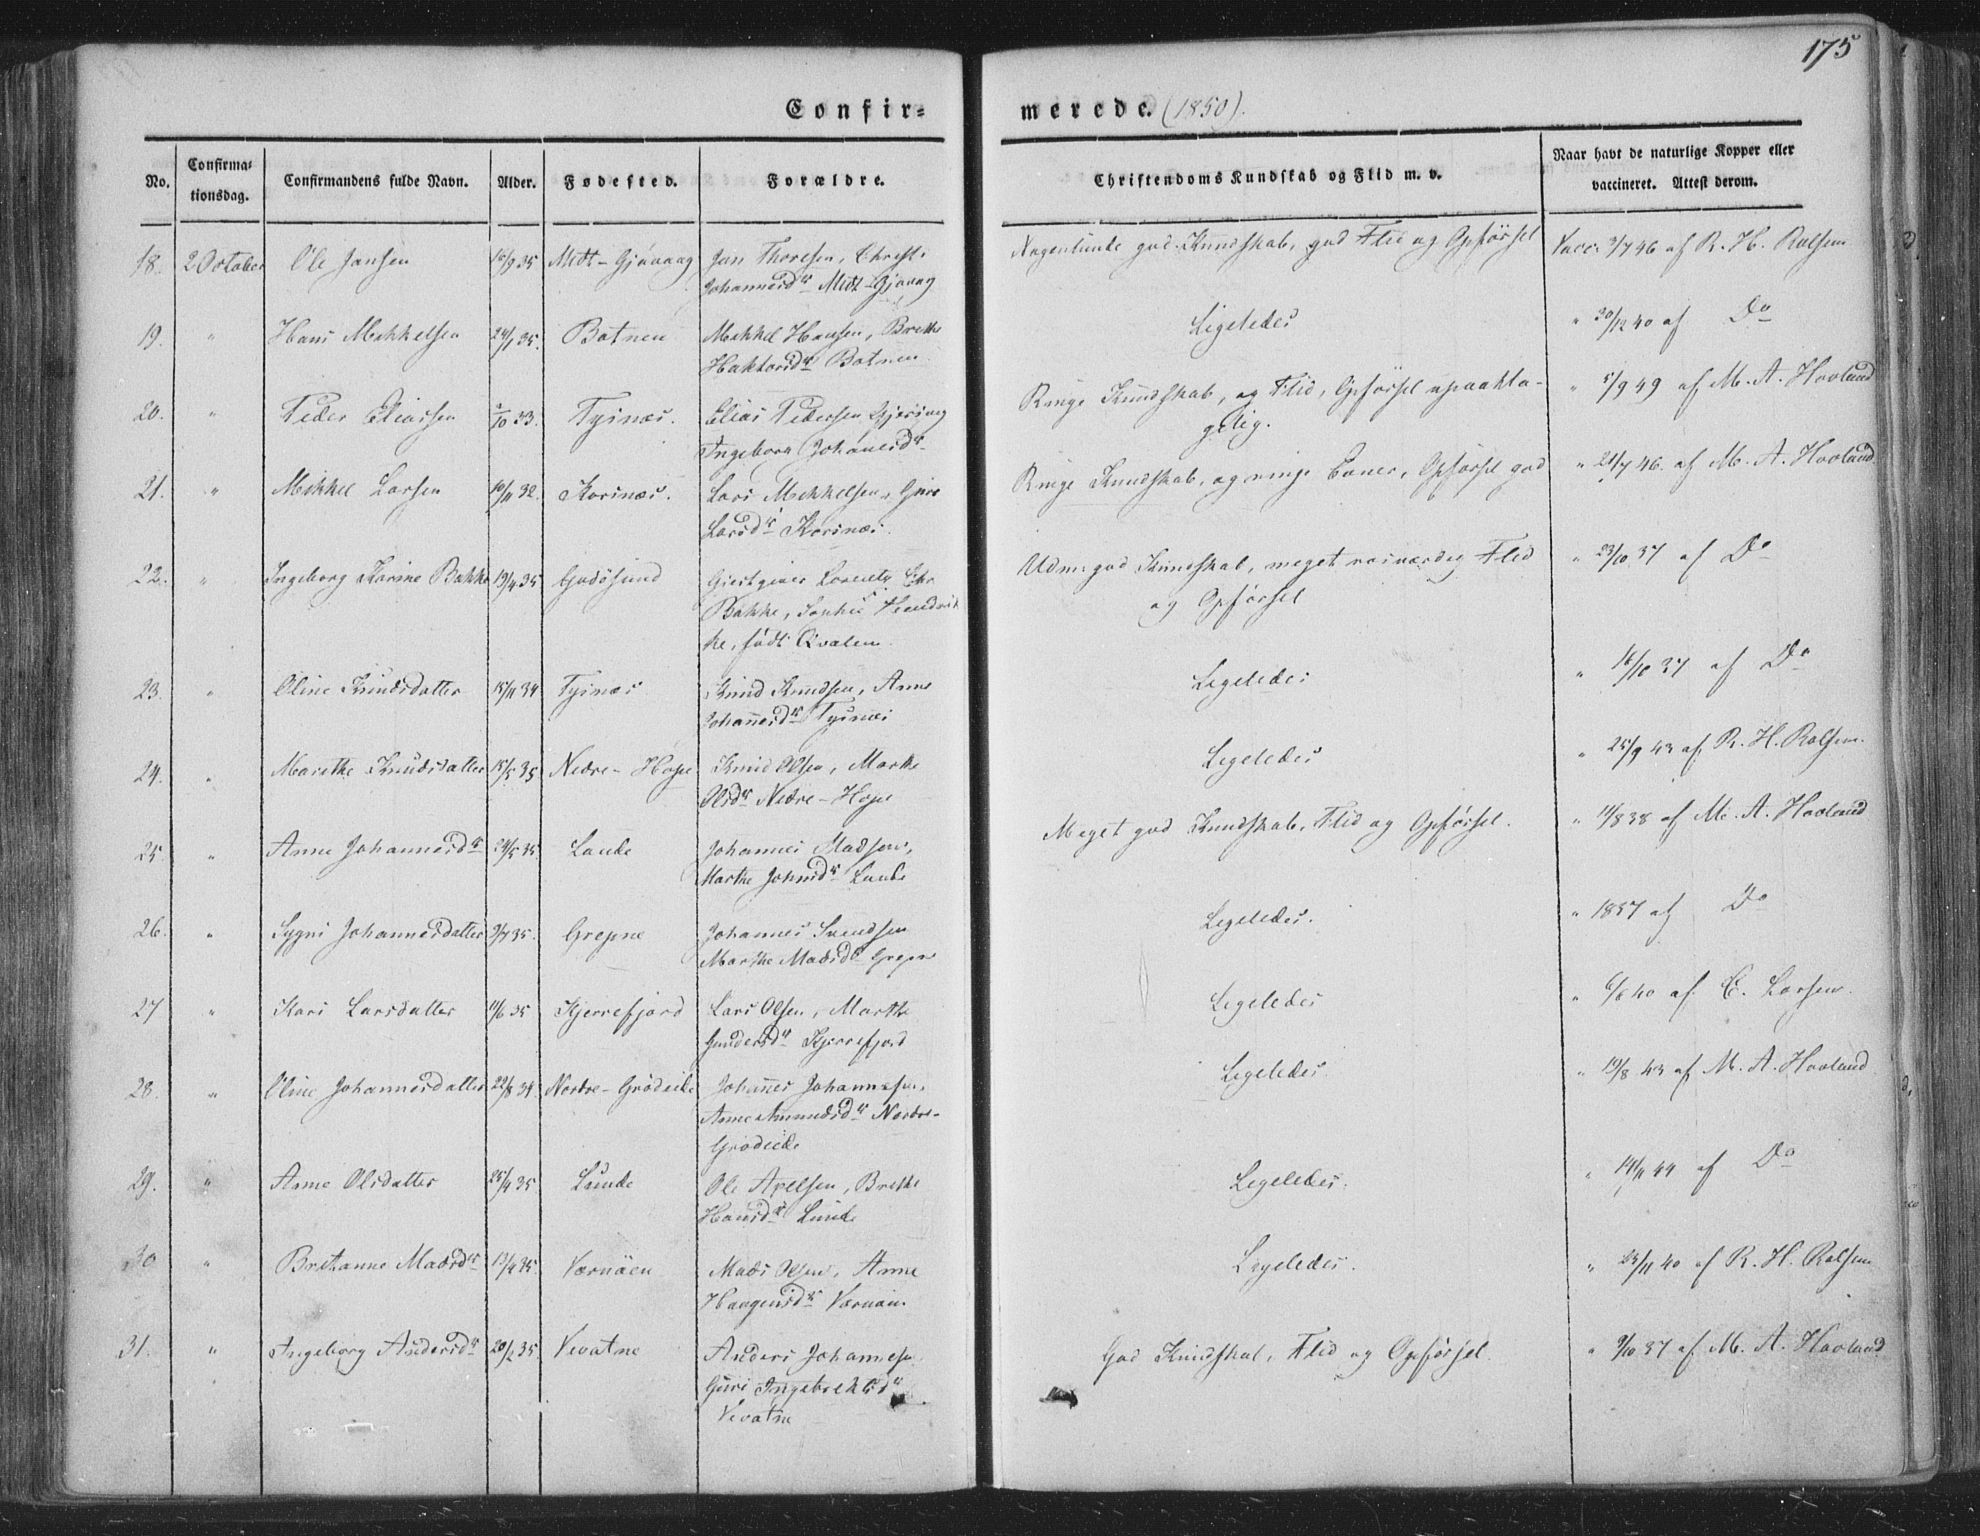 175
Confir=
merede. (1850).
No.
Confirma=
tionsdag.
Confirmandens fulde Navn.
Alder.
Fødested.
Forældre.
Christendoms Kundskab og Flid m. v.
Naar havt de naturlige Kopper eller
vaccineret. Attest derom.
18. 2 October Ole Jansen 16/9 35 Midt-Gjøvaag Jan Thoresen, Christi
Johannesdr Midt-Gjøvaag
Nogenlunde god Kundskab, god Flid og Opførsel Vacc: 3/7 46 af R. H. Rolfsen
19. " Hans Mikkelsen 24/1 35. Botnen Mikkel Hansen, Brithe
Haktorsdr Botnen.
Ligeledes " 30/12 40 af Do
20. " Peder Eliassen 2/10 33. Tysnæs. Elias Pedersen
Ingeborg Johanesdr
Ringe Kundskab, og Flid, Opførsel upaakla-
gelig.
" 5/9 49 af M. A. Hovland
21. " Mikkel Larsen 10/11 32. Korsnæs. Lars Mikkelsen, Guro
Larsdr Korsnæs.
Ringe Kundskab, og ringe Evner, Opførsel god " 21/7 46. af M. A. Hovland
22. " Ingeborg Karine Bakke 19/4 35 Godøsund Giestgiver Lorentz Chr
Bakke, Sophie Hendrik
ke, født Qvalen.
Udm: god Kundskab, meget rosværdig Flid
og Opførsel
" 23/10 37 af Do
23. " Oline Knudsdatter 15/11 34 Tysnæs Knud Knudsen, Anne
Johannesdr Tysnæs
Ligeledes " 16/10 37 af Do
24. " Marithe Knudsdatter 15/5 35 Nedre-Hope Knud Olsen, Marthe
Olsdr Nedre-Hope
Ligeledes " 25/9 43 af R. H. Rolfsen.
25. " Anne Johannesdr 24/5 35 Lunde Johannes Madsen,
Marthe Johnsdr Lunde
Meget god Kundskab, Flid og Opførsel. " 11/8 38 af M. A. Hovland
26. " Sygni Johannesdatter 3/7 35. Grepne Johannes Svendsen
Marthe Madsdr Grepne
Ligeledes. " 1837 af Do
27 " Kari Larsdatter 11/6 35 Kjerrefjord Lars Olsen, Marthe
Gundersdr Kjerrefjord
Ligeledes " 6/8 40 af E. Larsen.
28. " Oline Johannesdatter 22/8 34 Nordre-Grødeide Johannes Johannesen,
Anne Amundsdr Nordre-
Grødeide
Ligeledes " 19/8 43 af M. A. Hovland
29. " Anne Olsdatter 25/4 35 Lunde Ole Axelsen, Brithe
Hansdr Lunde
Ligeledes. " 14/11 44 af Do
30 " Britanne Madsdr 13/4 35. Værnøen Mads Olsen, Anne
Haagensdr Værnøen
Ligeledes. " 24/11 40 af R. H. Rolfsen
31. " Ingeborg Andersdr 20/2 35 Vevatne Anders Johannesen
Guri Ingebrektsdr
Vevatne
God Kundskab, Flid og Opførsel. " 9/10 37 af M. A. Hovland